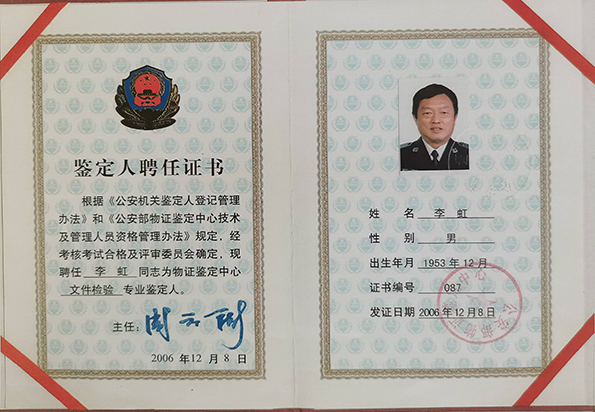 鉴定人聘任证书
根据《公安机关鉴定人登记管理
办法》和《公安部物证鉴定中心技术
及管理人员资格管理办法》规定，经
考核考试合格及评审委员会确定，现
聘任 李 虹 同志为物证鉴定中心
文件检验 专业鉴定人。
主任：
2006 年 12 月 8 日
姓 名 李 虹
性 别 男
出生年月 1953 年 12 月
证书编号 087
发证日期 2006 年 12 月 8 日